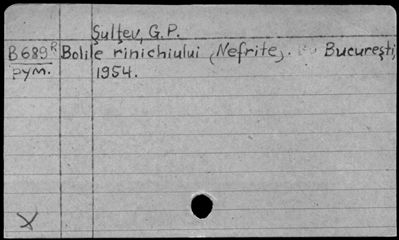 Şulţev, G.P.
B689R Bolile rinichiului (Nefrite). Bucureşti,
рум. 1954.
X